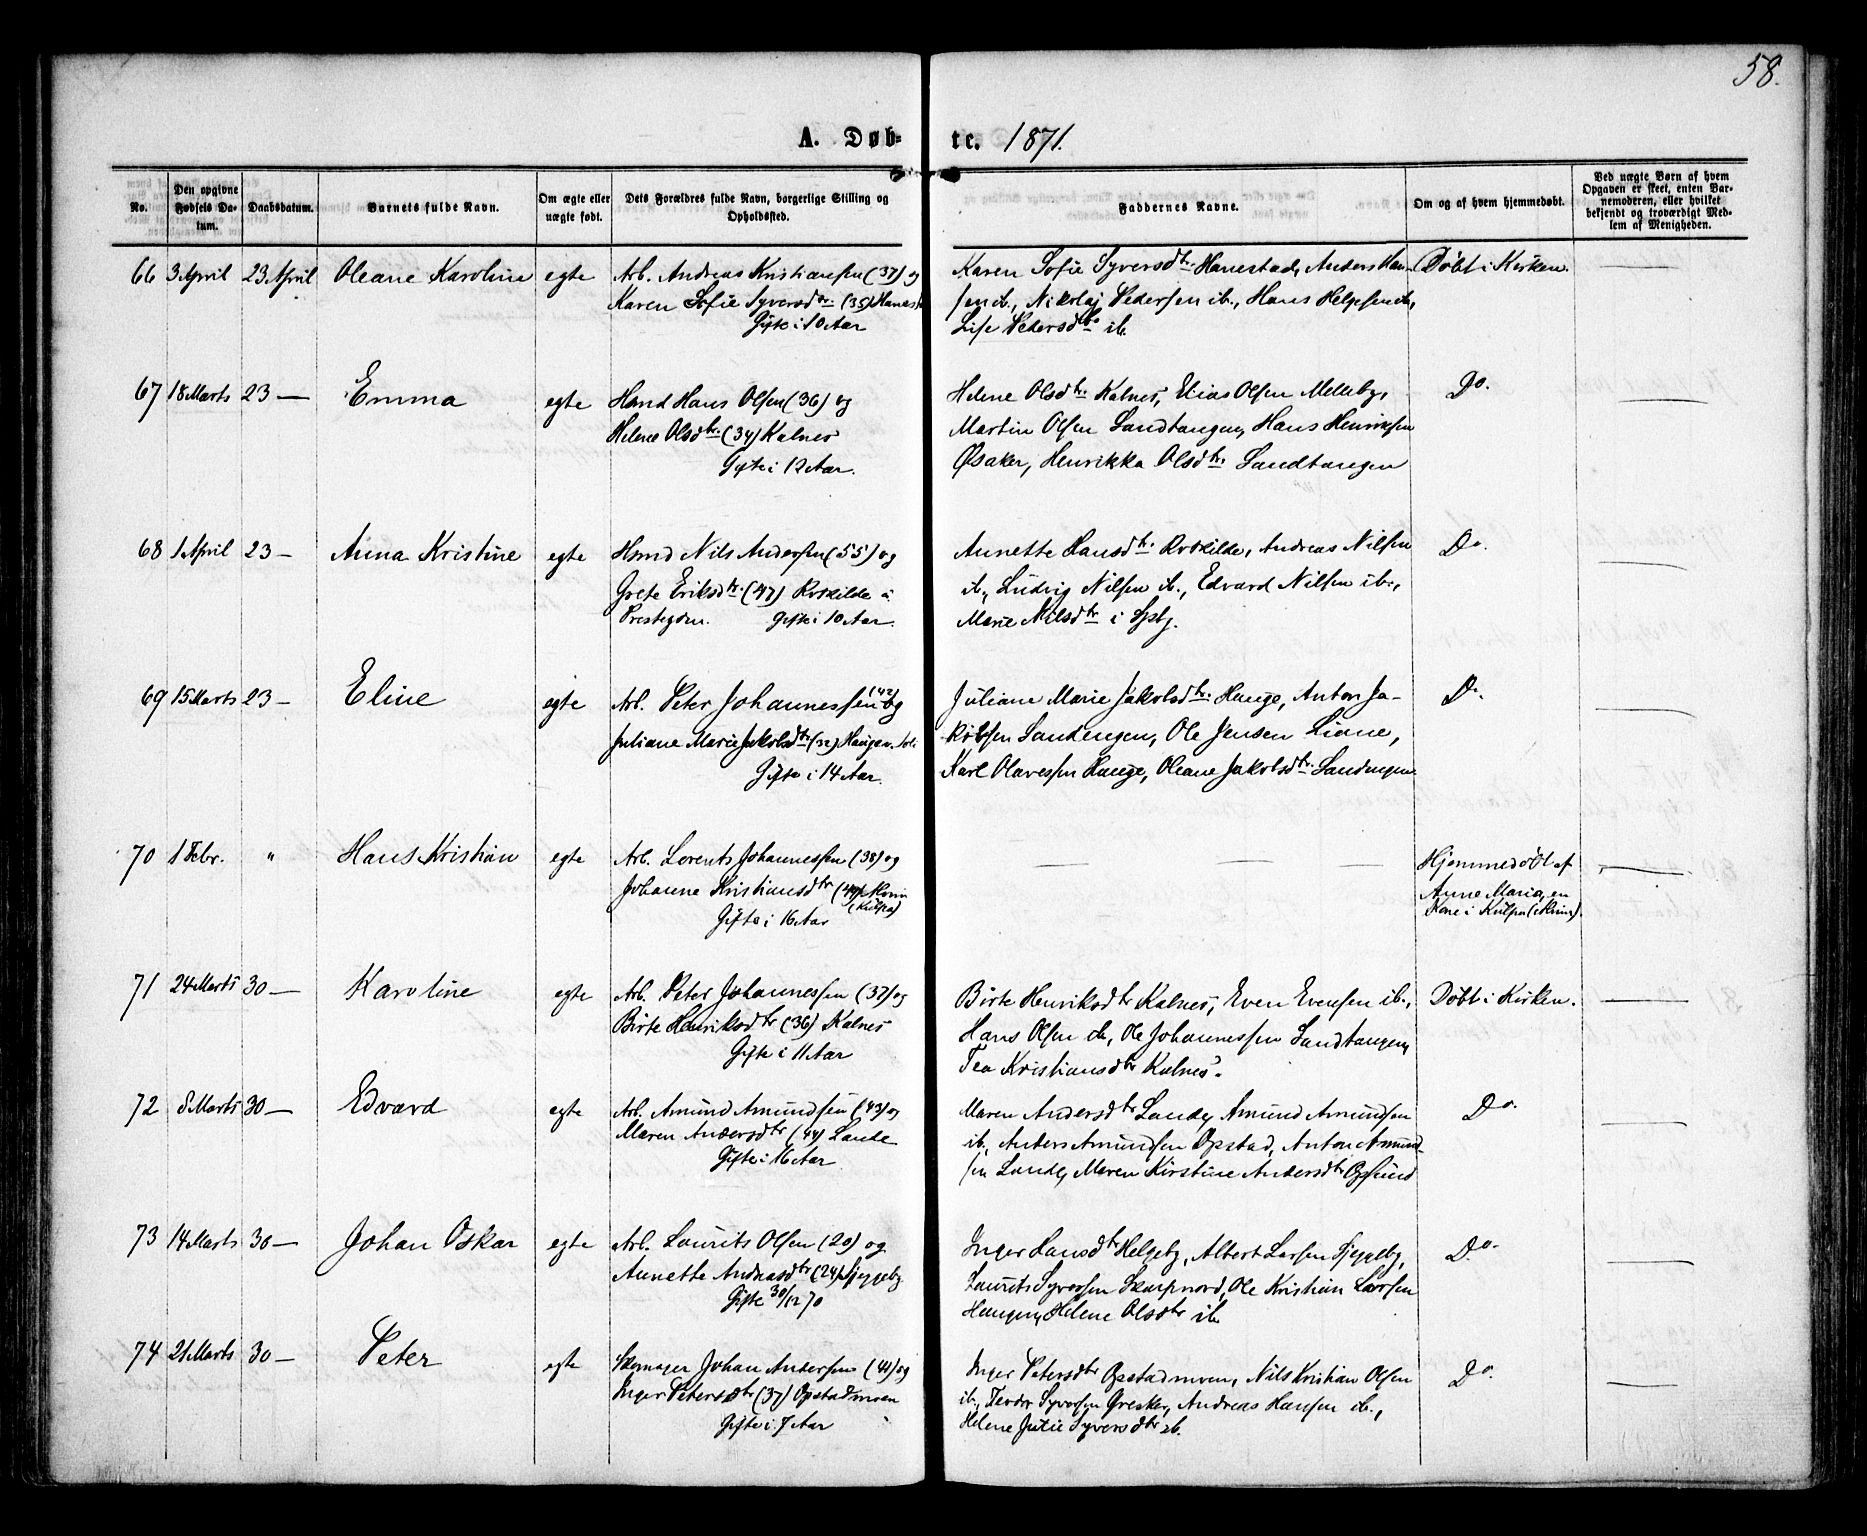 58.
A. Døb- te. 1871.
No.
Den opgivne Fødsels Da-
tum.
Daabsdatum.
Barnets fulde Navn.
Om ægte eller
uægte født.
Dets Forældres fulde Navn, borgerlige Stilling og
Opholdssted.
Faddernes Navne.
Om og af hvem hjemmedøbt.
Ved uægte Børn af hvem
Opgaven er skeet, enten Bar-
nemoderen, eller hvilket
bekjendt og troværdigt Med-
lem af Menigheden.
66 3 April 23 April Oleane Karoline egte Arb. Andreas Kristiansen (37) og
Karen Sofie Syversdtr. (35) Hanest
Gifte i 10 Aar
Karen Sofie Syversdtr. Hanestad, Anders Han-
sen ib., Nikolaj Pedersen ib., Hans Helgesen ib.,
Lise Pedersdtr. ib.
Døbt i Kirken.
67 18 Marts 23 — Emma egte Hmd Hans Olsen (36) og
Helene Olsdtr. (34) Kalnes
Gifte i 12 Aar.
Helene Olsdtr. Kalnes, Elias Olsen Melleby,
Martin Olsen Sandtangen, Hans Henriksen
Øsaker, Henrikka Olsdtr. Sandtangen
Do.
68 1 April 23 — Anna Kristine egte Hsmd Nils Andersen (55) og
Grete Eriksdtr. (47) Roskilde u
Prestegden. Gifte i 10 Aar.
Annette Hansdtr. Roskilde, Andreas Nilsen
ib., Ludvig Nilsen ib., Edvard Nilsen ib.,
Marie Nilsdtr i Spbg.
Do.
69 15 Marts 23 — Eline egte Arb. Peter Johannessen (42) og
Juliane Marie Jakobsdtr (32) Haugen
Gifte i 14 Aar.
Juliane Marie Jakobsdtr. Hauge, Anton Ja-
kobsen Sandengen, Ole Jensen Liane,
Karl Olavesen Hauge, Oleane Jakobsdtr. Sandengen
Do.
70 1 Febr. " Hans Kristian egte Arb. Lorents Johannessen (38) og
Johanne Kristiansdtr (40)
(Kulpa)
Gifte i 16 Aar
— — — —
Hjemmedøbt af
Anne Maria, en
Kone i Kulpa
71 24 Marts 30 — Karoline egte Arb. Peter Johannessen (37) og
Birte Henriksdtr (36) Kalnes
Gifte i 11 Aar
Birte Henriksdtr Kalnes, Even Evensen ib.,
Hans Olsen ib., Ole Johannessen Sandtangen,
Tea Kristiansdtr Kalnes.
Døbt i Kirken.
72 8 Marts 30 — Edvard egte Arb. Amund Amundsen (43) og
Maren Andersdtr (44) Lande
Gifte i 16 Aar
Maren Andersdtr Lande, Amund Amundsen
ib., Anders Amundsen Opstad, Anton Amund-
sen Lande, Maren Kirstine Andersdtr Opsund
Do.
73 14 Marts 30 — Johan Oskar egte Arb. Laurits Olsen (20) og
Annette Andreasdtr (24) Sjeggeby
Gifte 30/12 70
Inger Hansdtr Helgeby, Albert Larsen Sjeggeby,
Laurits Syversen Skarpnord, Ole Kristian Larsen
Haugen, Helene Olsdtr ib.
Do.
74 21 Marts 30 — Peter egte Skomager Johan Andersen (44) og
Inger Petersdtr (37) Opstadmoen
Gifte i 7 Aar
Inger Petersdtr Opstadmoen, Nils Kristian Olsen
ib., Teodor Syversen Gresker, Andreas Hansen ib.,
Helene Julie Syversdtr ib.
Do.